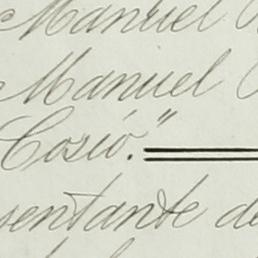 Manuel
Manuel
Cosió."
sentante de